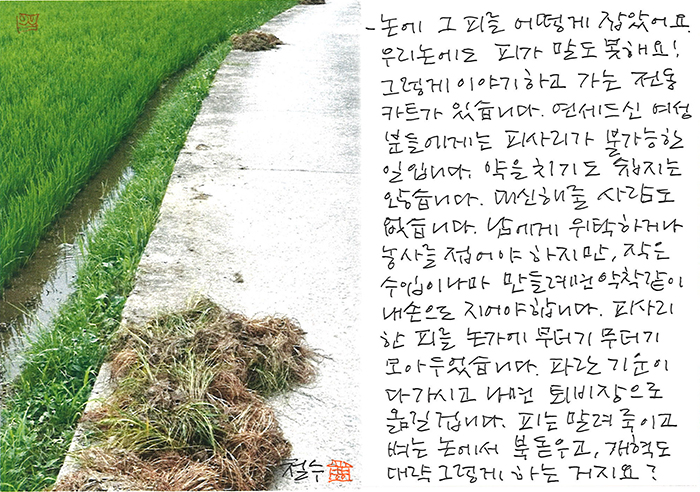 -논에 그 피를 어떻게 잡았어요.
우리논에도 피가 말도 못해요!
그렇게 이야기하고 가는 전동
카트가 있습니다. 연세드신 여성
분들에게는 피사리가 불가능한
일입니다. 약을 치기도 쉽지는
않습니다. 대신해줄 사람도
없습니다. 남에게 위탁하거나
농사를 접어야 하지만, 작은
수입이나마 만들려면 악착같이
내손으로 지어야합니다. 피사리
한 피를 논가에 무더기 무더기
모아두었습니다. 파란 기운이
다가시고 나면 퇴비장으로
옮길겁니다. 피는 말려 죽이고
벼는 논에서 북돋우고, 개혁도
대략 그렇게 하는 거지요?
철수